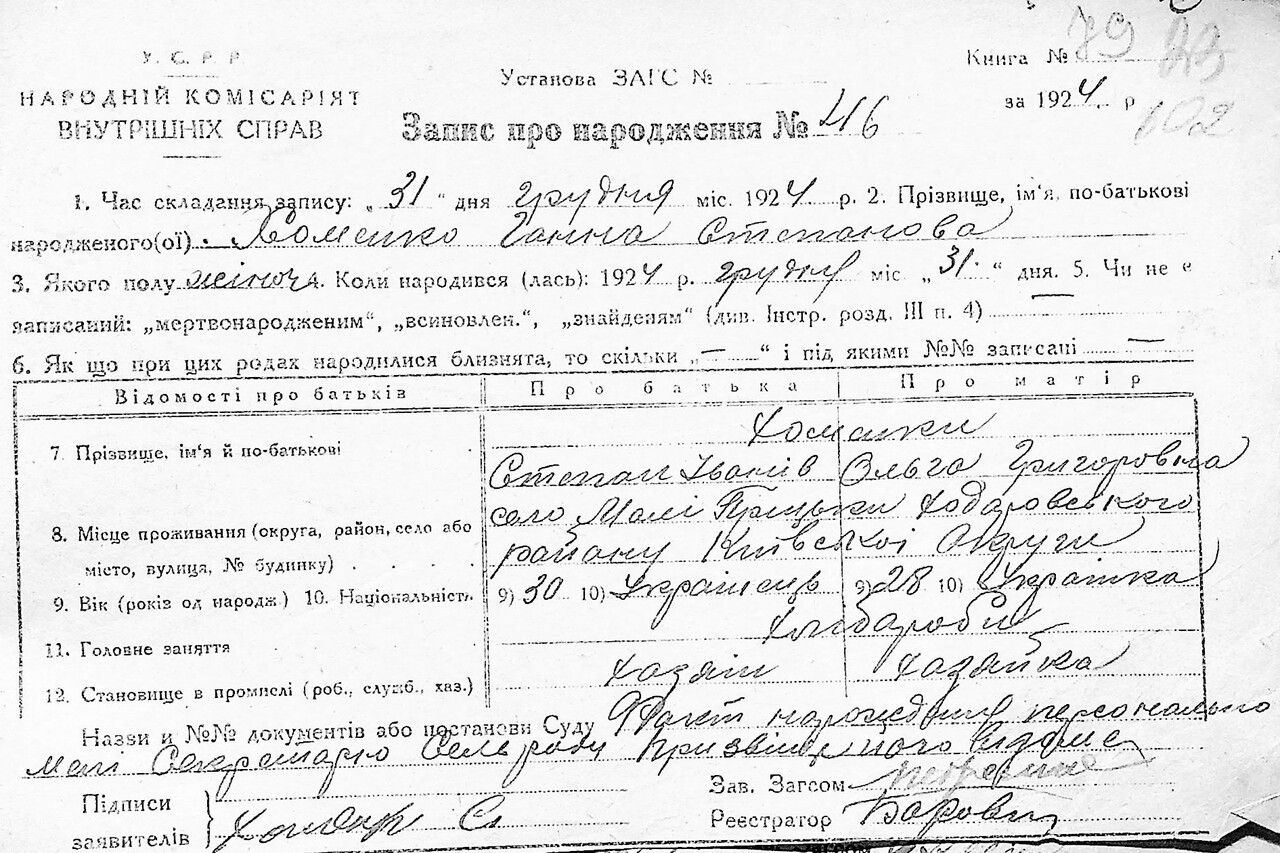 У. С. Р. Р.
НАРОДНІЙ КОМІСАРІЯТ
ВНУТРІШНІХ СПРАВ
Установа ЗАГС №
Запис про народження № 46
Книга № 79
за 1924 р
102
1. Час складання запису: „31“ дня грудня міс. 1924 р. 2. Прізвище, ім'я, по-батькові
народженого(ої) Хоменко Ганна Степанова
3. Якого полу жіноч 4. Коли народився (лась): 1924 р. грудня міс „31“ дня. 5. Чи не є
записаний: „мертвонародженим“, „всиновлен.“, „знайденям“ (див. Інстр. розд. III п. 4) —
6. Як що при цих родах народилися близнята, то скільки „—“ і під якими №№ записані —
Відомості про батьків Про батька Про матір
7. Прізвище, ім'я й по-батькові Хоменки
Степан Іванів Ольга Григоровна
8. Місце проживання (округа, район, село або село Малі Прицьки Ходоровського
місто, вулиця, № будинку) району Київської Округи
9. Вік (років од народж.) 10. Національність 9) 30 10) Українець 9) 28 10) Українка
11. Головне заняття Хлібороби
12. Становище в промислі (роб., служб., хаз.) Хазяін Хазяйка
Назви и №№ документів або постанови Суду Факт народження персонально
мені Секретарю Сельради
Підписи
заявителів
Зав. Загсом
Реєстратор